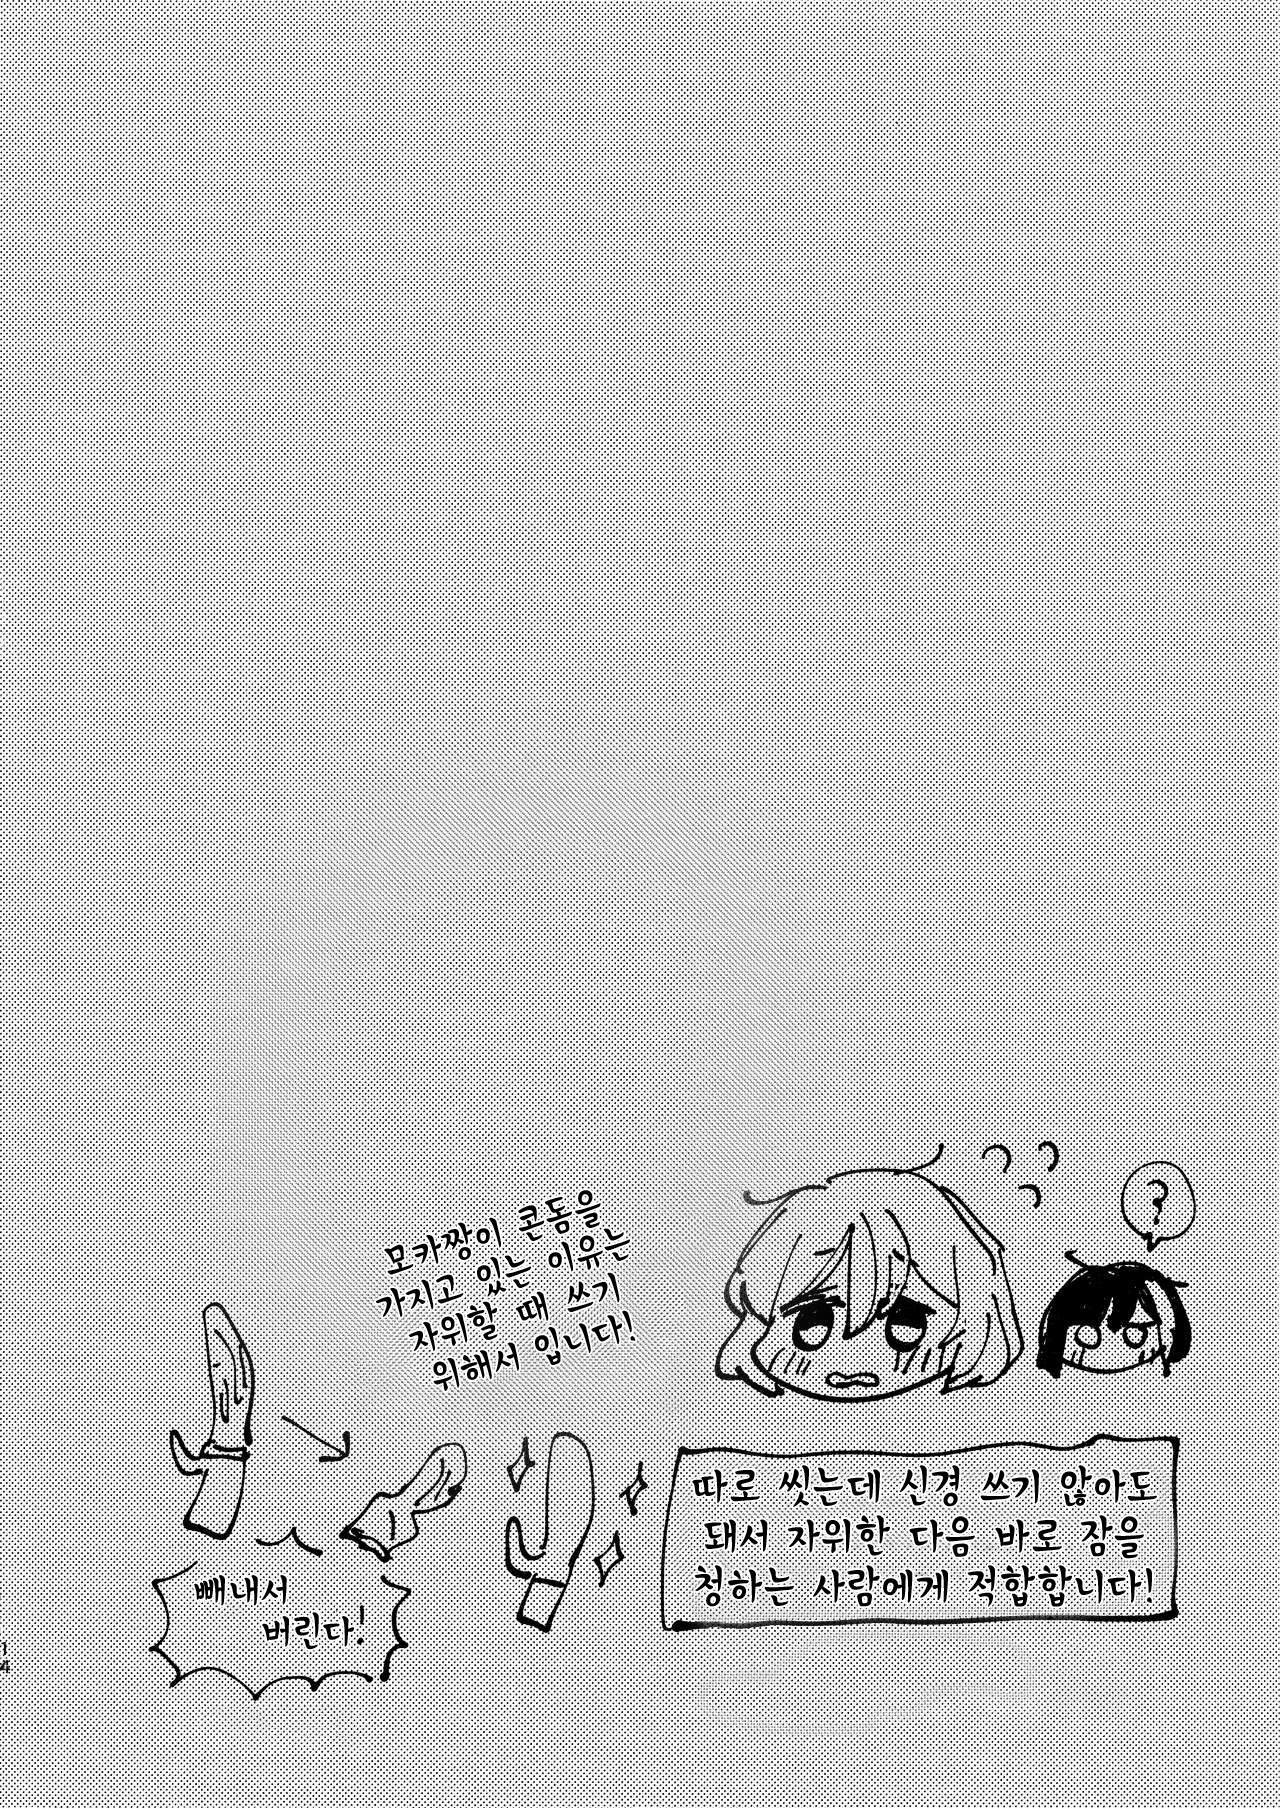 모카짱이 콘돔을
가지고 있는 이유는
자위할 때 쓰기
위해서 입니다!
?
따로 씻는데 신경 쓰기 않아도
돼서 자위한 다음 바로 잠을
청하는 사람에게 적합합니다!
빼내서
버린다!
14